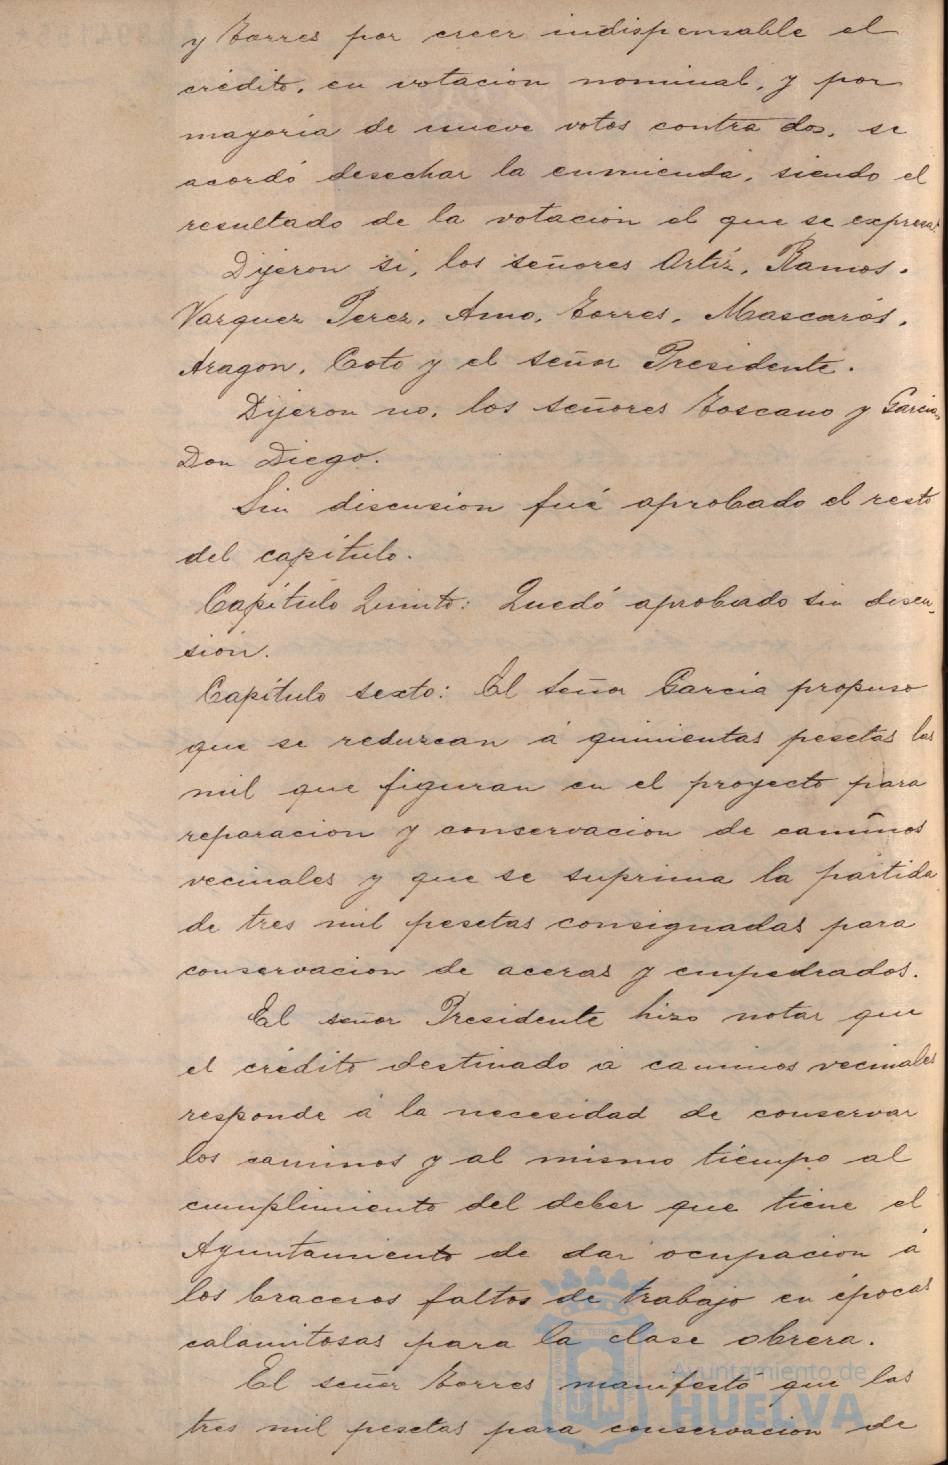 y Torres por creer indispensable el
crédito, en votacion nominal, y por
mayoría de nueve votos contra dos, se
acordó desechar la enmienda, siendo el
resultado de la votacion el que se expresa:
Dijeron si, los señores Ortiz, Ramos,
Vazquez Perez, Amo, Torres, Mascarós,
Aragon, Coto y el señor Presidente.
Dijeron no, los señores Toscano y Garcia,
Don Diego.
Sin discusion fué aprobado el resto
del capítulo.
Capítulo Quinto: Quedó aprobado sin discu-
sión.
Capítulo sexto: El señor Garcia propuso
que se reduzcan á quinientas pesetas las
mil que figuran en el proyecto para
reparacion y conservacion de caminos
vecinales y que se suprima la partida
de tres mil pesetas consignadas para
conservacion de aceras y empedrados.
El señor Presidente hizo notar que
el crédito destinado á caminos vecinales
responde á la necesidad de conservar
los caminos y al mismo tiempo al
cumplimiento del deber que tiene el
Ayuntamiento de dar ocupacion á
los braceros faltos de trabajo en épocas
calamitosas para la clase obrera.
El señor Torres manifestó que las
tres mil pesetas para conservacion de
Ayuntamiento de
HUELVA